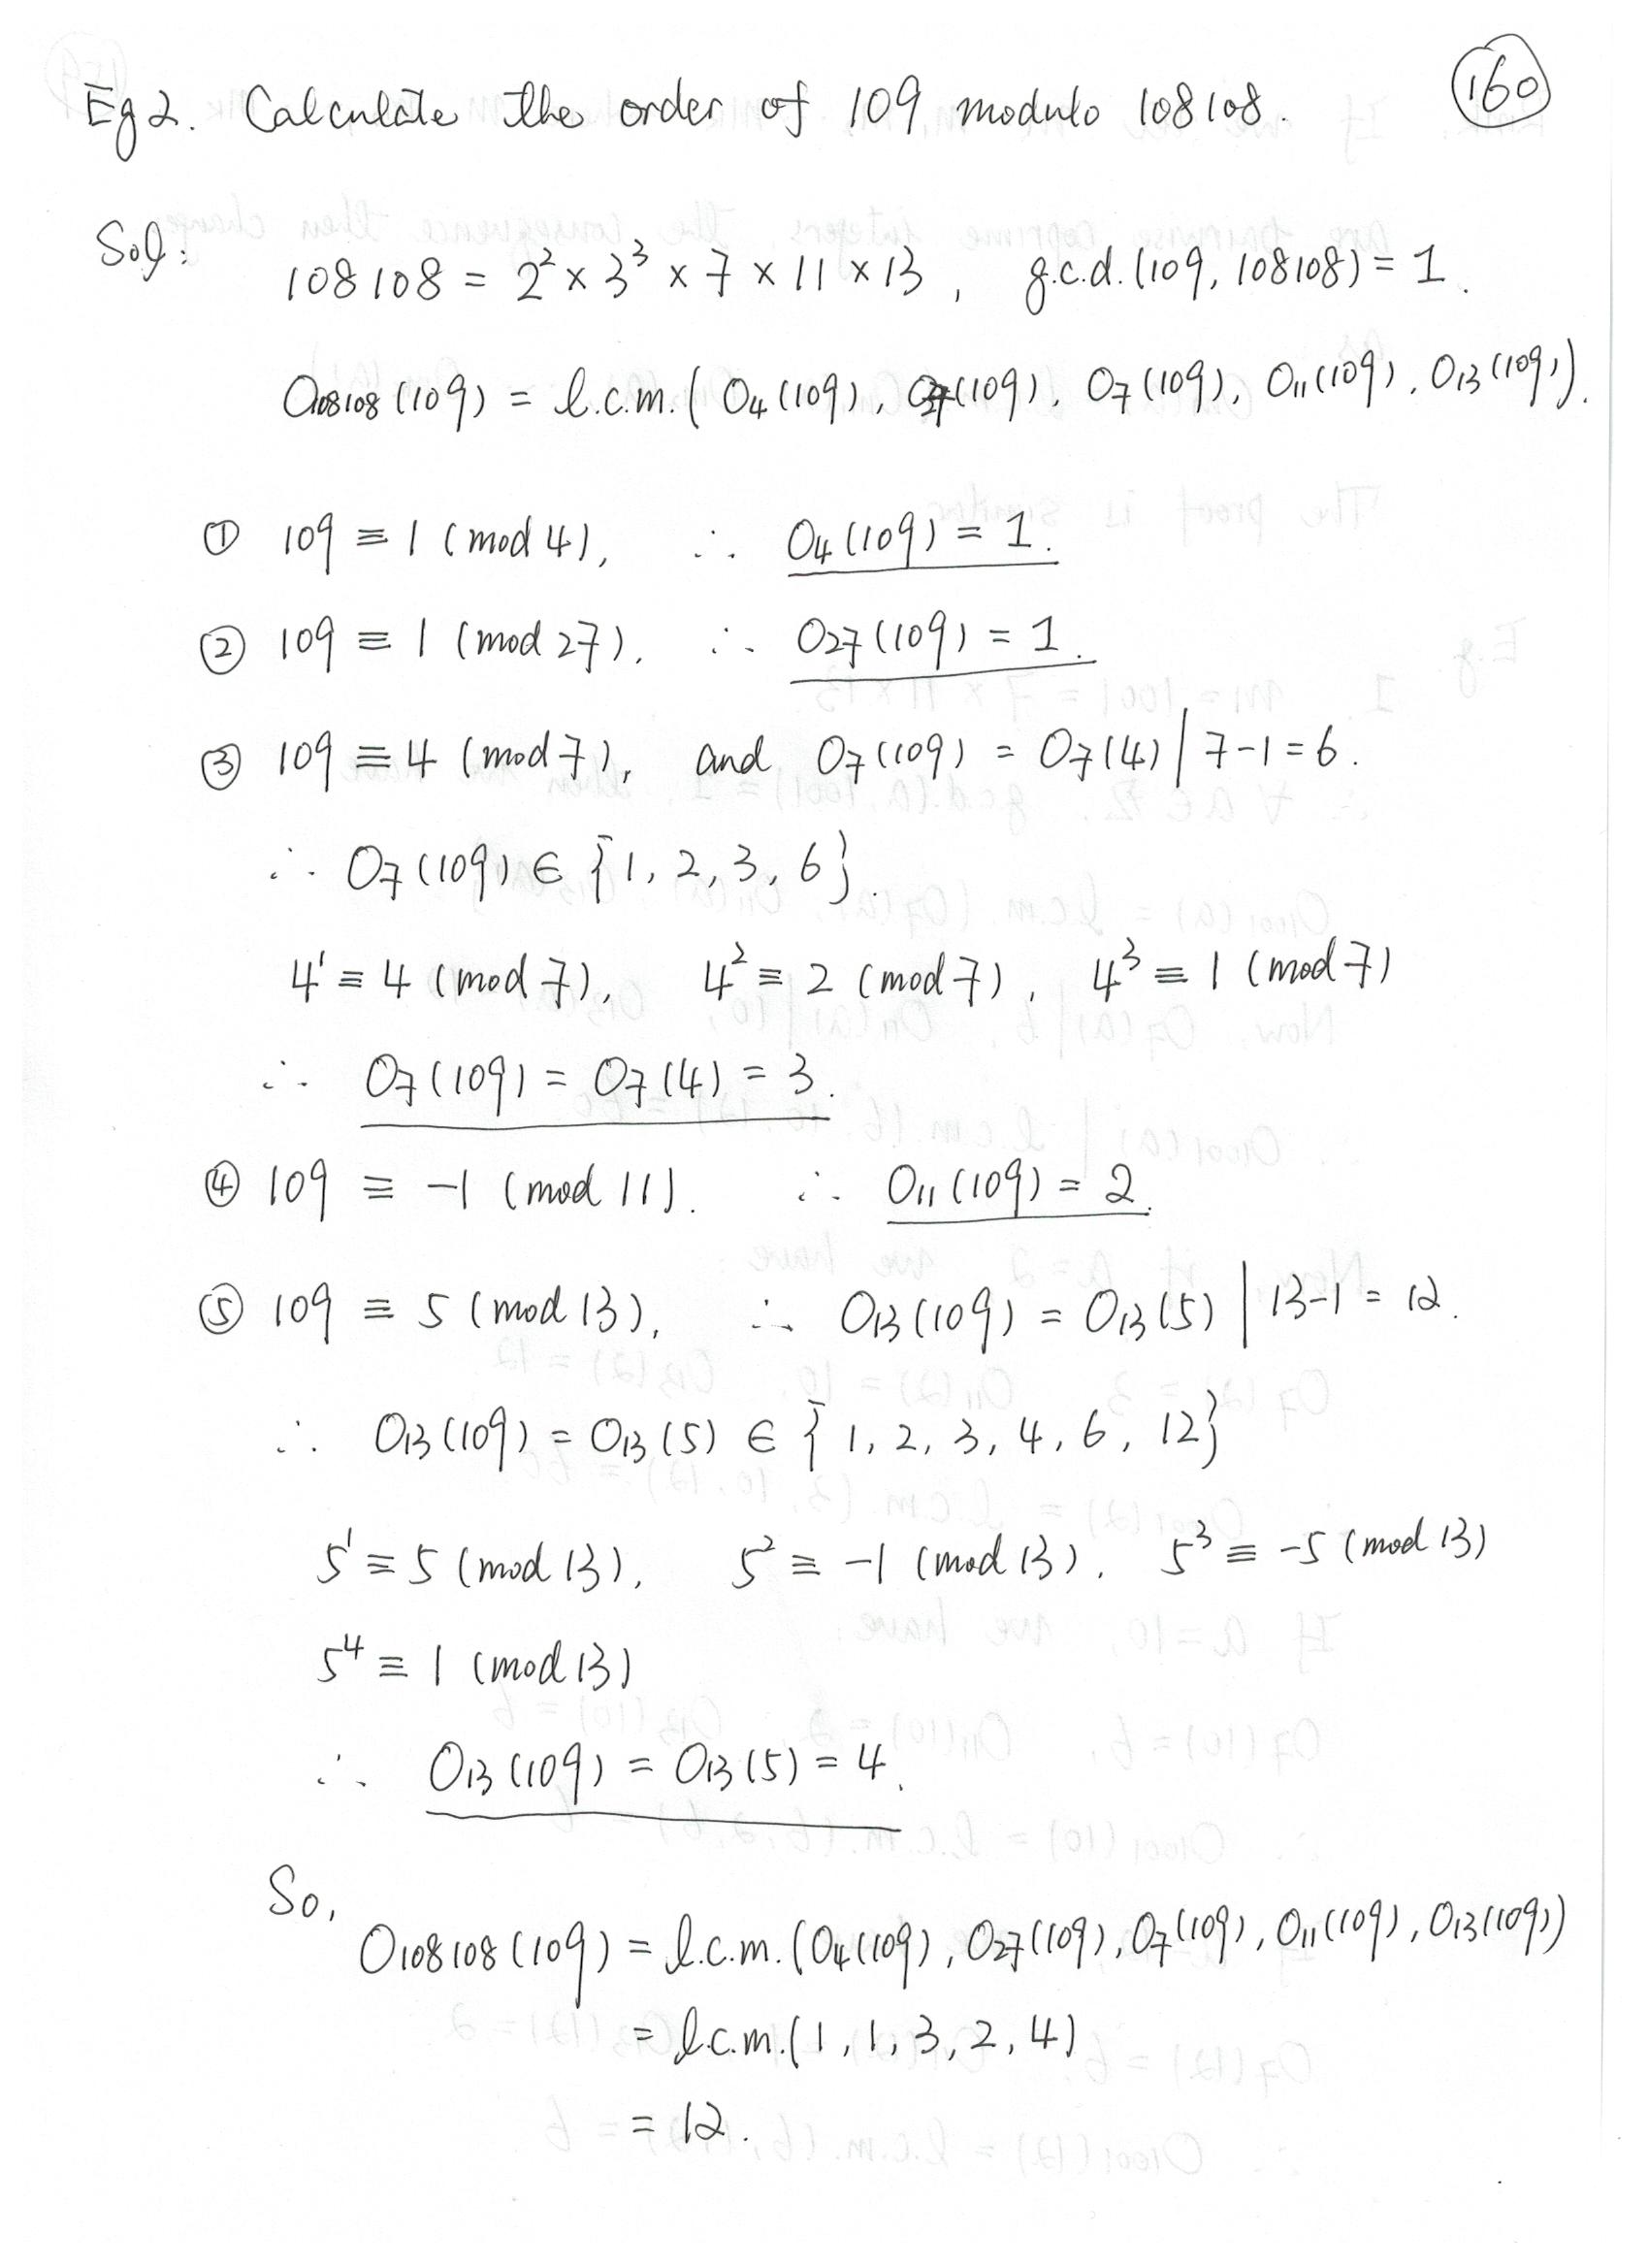 Eg 2. Calculate the order of 109 modulo 108108. 160
Sol:
108108 = 2² × 3³ × 7 × 11 × 13, g.c.d. (109, 108108) = 1.
O108108 (109) = l.c.m. ( O4 (109), O27 (109), O7 (109), O11 (109), O13 (109) ).
① 109 ≡ 1 (mod 4), ∴ O4 (109) = 1.
② 109 ≡ 1 (mod 27). ∴ O27 (109) = 1.
③ 109 ≡ 4 (mod 7), and O7 (109) = O7 (4) | 7-1 = 6.
∴ O7 (109) ∈ {1, 2, 3, 6}.
4¹ ≡ 4 (mod 7), 4² ≡ 2 (mod 7), 4³ ≡ 1 (mod 7)
∴ O7 (109) = O7 (4) = 3.
④ 109 ≡ -1 (mod 11). ∴ O11 (109) = 2.
⑤ 109 ≡ 5 (mod 13), ∴ O13 (109) = O13 (5) | 13-1 = 12.
∴ O13 (109) = O13 (5) ∈ { 1, 2, 3, 4, 6, 12}
5¹ ≡ 5 (mod 13), 5² ≡ -1 (mod 13), 5³ ≡ -5 (mod 13)
5⁴ ≡ 1 (mod 13)
∴ O13 (109) = O13 (5) = 4.
So,
O108108 (109) = l.c.m. (O4 (109), O27 (109), O7 (109), O11 (109), O13 (109))
= l.c.m. (1, 1, 3, 2, 4)
= 12.